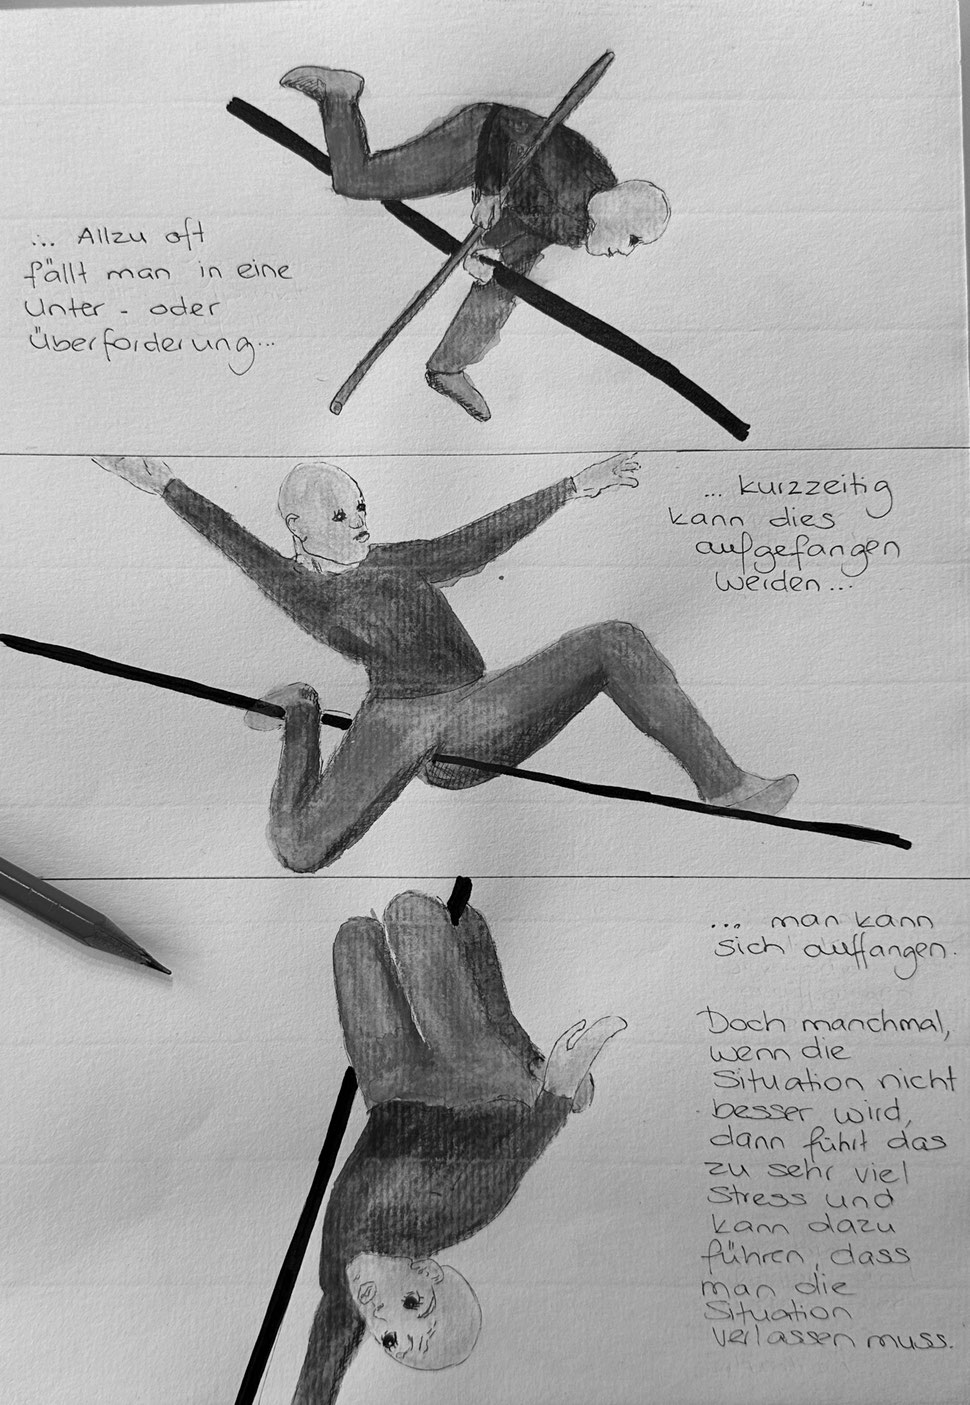 ... Allzu oft
fällt man in eine
Unter- oder
Überforderung...
... kurzzeitig
kann dies
aufgefangen
werden...
... man kann
sich auffangen.
Doch manchmal,
wenn die
Situation nicht
besser wird,
dann führt das
zu sehr viel
Stress und
kann dazu
führen, dass
man die
Situation
verlassen muss.